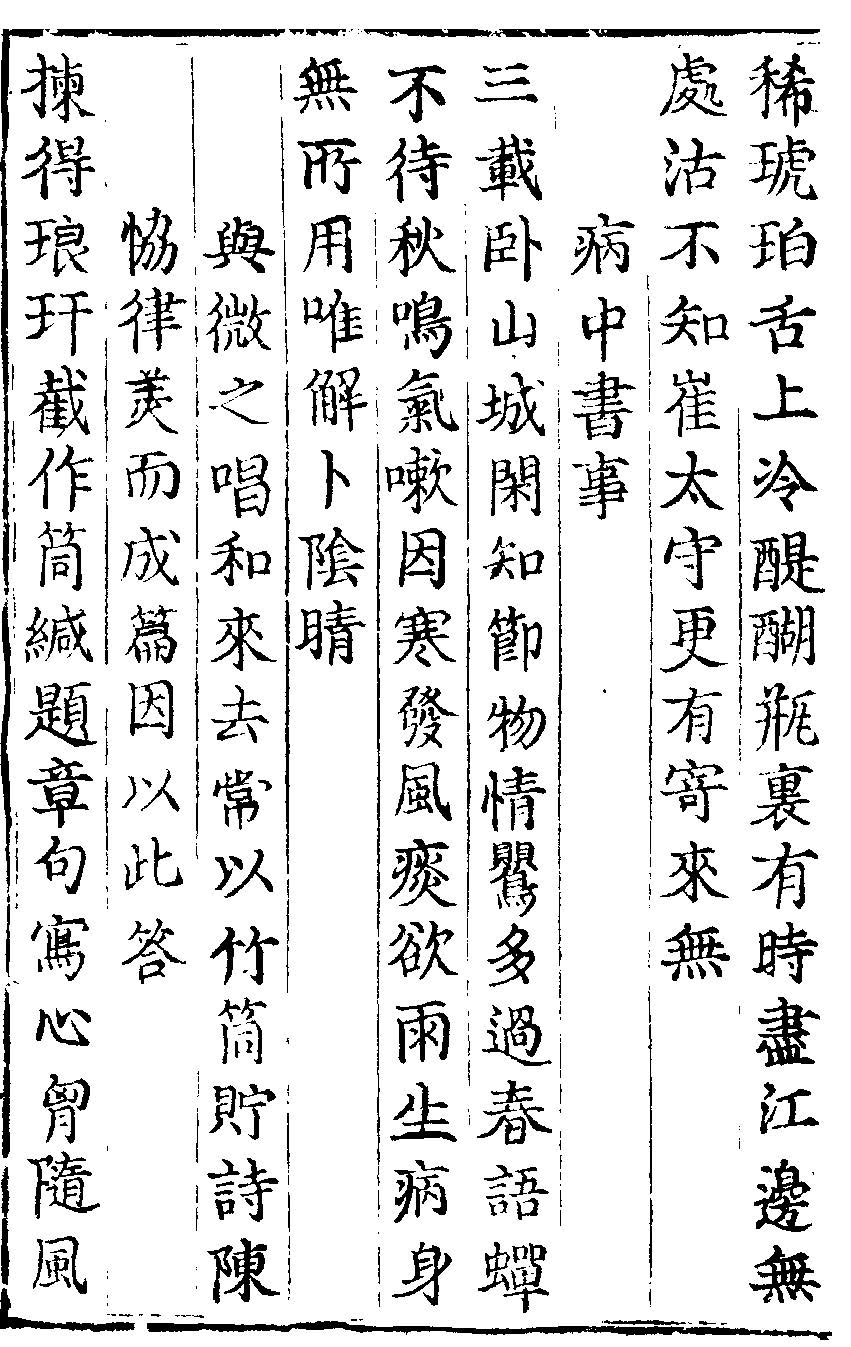 稀琥珀舌上冷醍醐瓶裏有時盡江邊無
處沽不知崔太守更有寄來無
病中書事
三載卧山城閑知節物情鸎多過春語蟬
不待秋鳴氣嗽因寒發風痰欲雨生病身
無所用唯解卜陰晴
與微之唱和來去常以竹筒貯詩陳
恊律美而成篇因以此答
揀得琅玕截作筒緘題章句寫心胷隨風